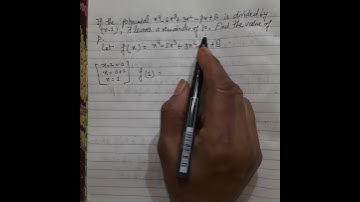 If the polynomial x⁴-2x³+3x²-px+8 is divided by
(x-2), it leaves a remainder of 10. Find the value of
p.
Let f(x) = x⁴-2x³+3x² +8
x-2=0
x=0+2
x=2
f(2) =